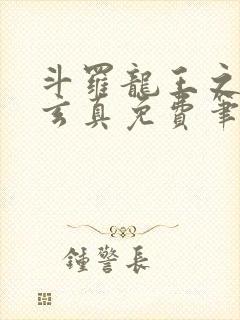 斗羅龍王之
玄真免費筆
鍾警長